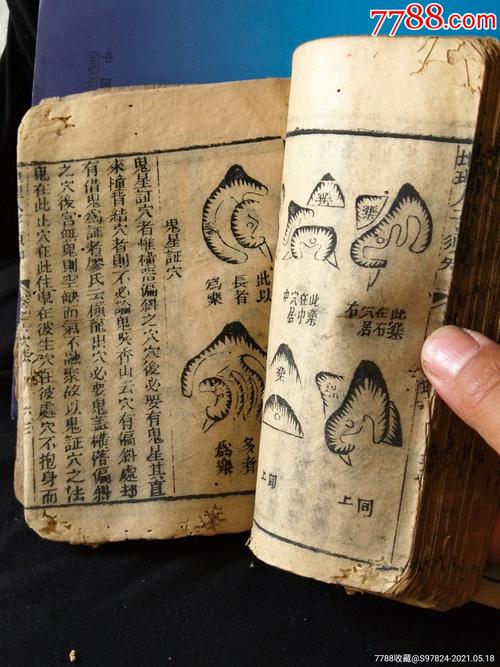 7788.com
中國
樂
樂
此樂在右穴居右
此樂在中穴居中
樂
樂
同上
同上
此以長者為樂
多者為樂
鬼星証穴
鬼星証穴者惟橫落偏斜之穴穴後必要有鬼星其直
來撞背結穴者則不必論鬼矣香山云穴有偏斜處却
有借鬼為証者廖氏云橫龍出穴必要鬼盖橫落偏斜
之穴後當無鬼則坐缺而氣不融聚故以鬼証穴之法
鬼在此止穴在此住鬼在彼生穴在彼處穴不抱身而
7788收藏@S97824-2021.05.18